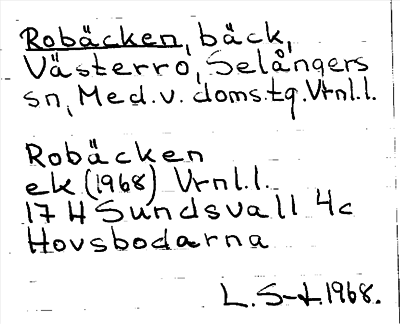 Robäcken, bäck,
Västerro, Selångers
sn, Med.v. doms.tg. Vtnl.l.
Robäcken
ek (1968) Vrnl.l.
17 H Sundsvall 4c
Hovsbodarna
L. S-t. 1968.